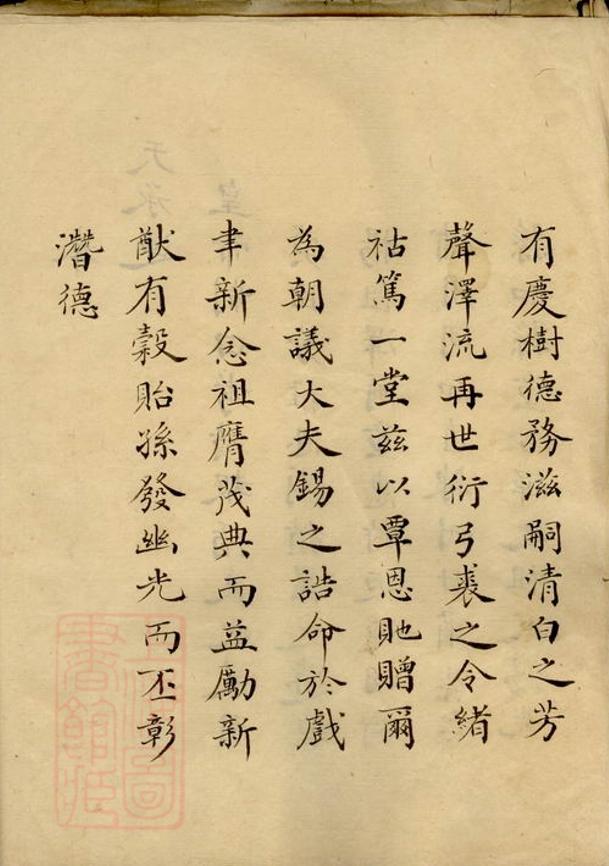 有慶樹德務滋嗣清白之芳
聲澤流再世衍弓裘之令緒
祜篤一堂兹以覃恩貤贈爾
為朝議大夫錫之誥命於戲
聿新念祖膺茂典而益勵新
猷有穀貽孫發幽光而丕彰
濳德